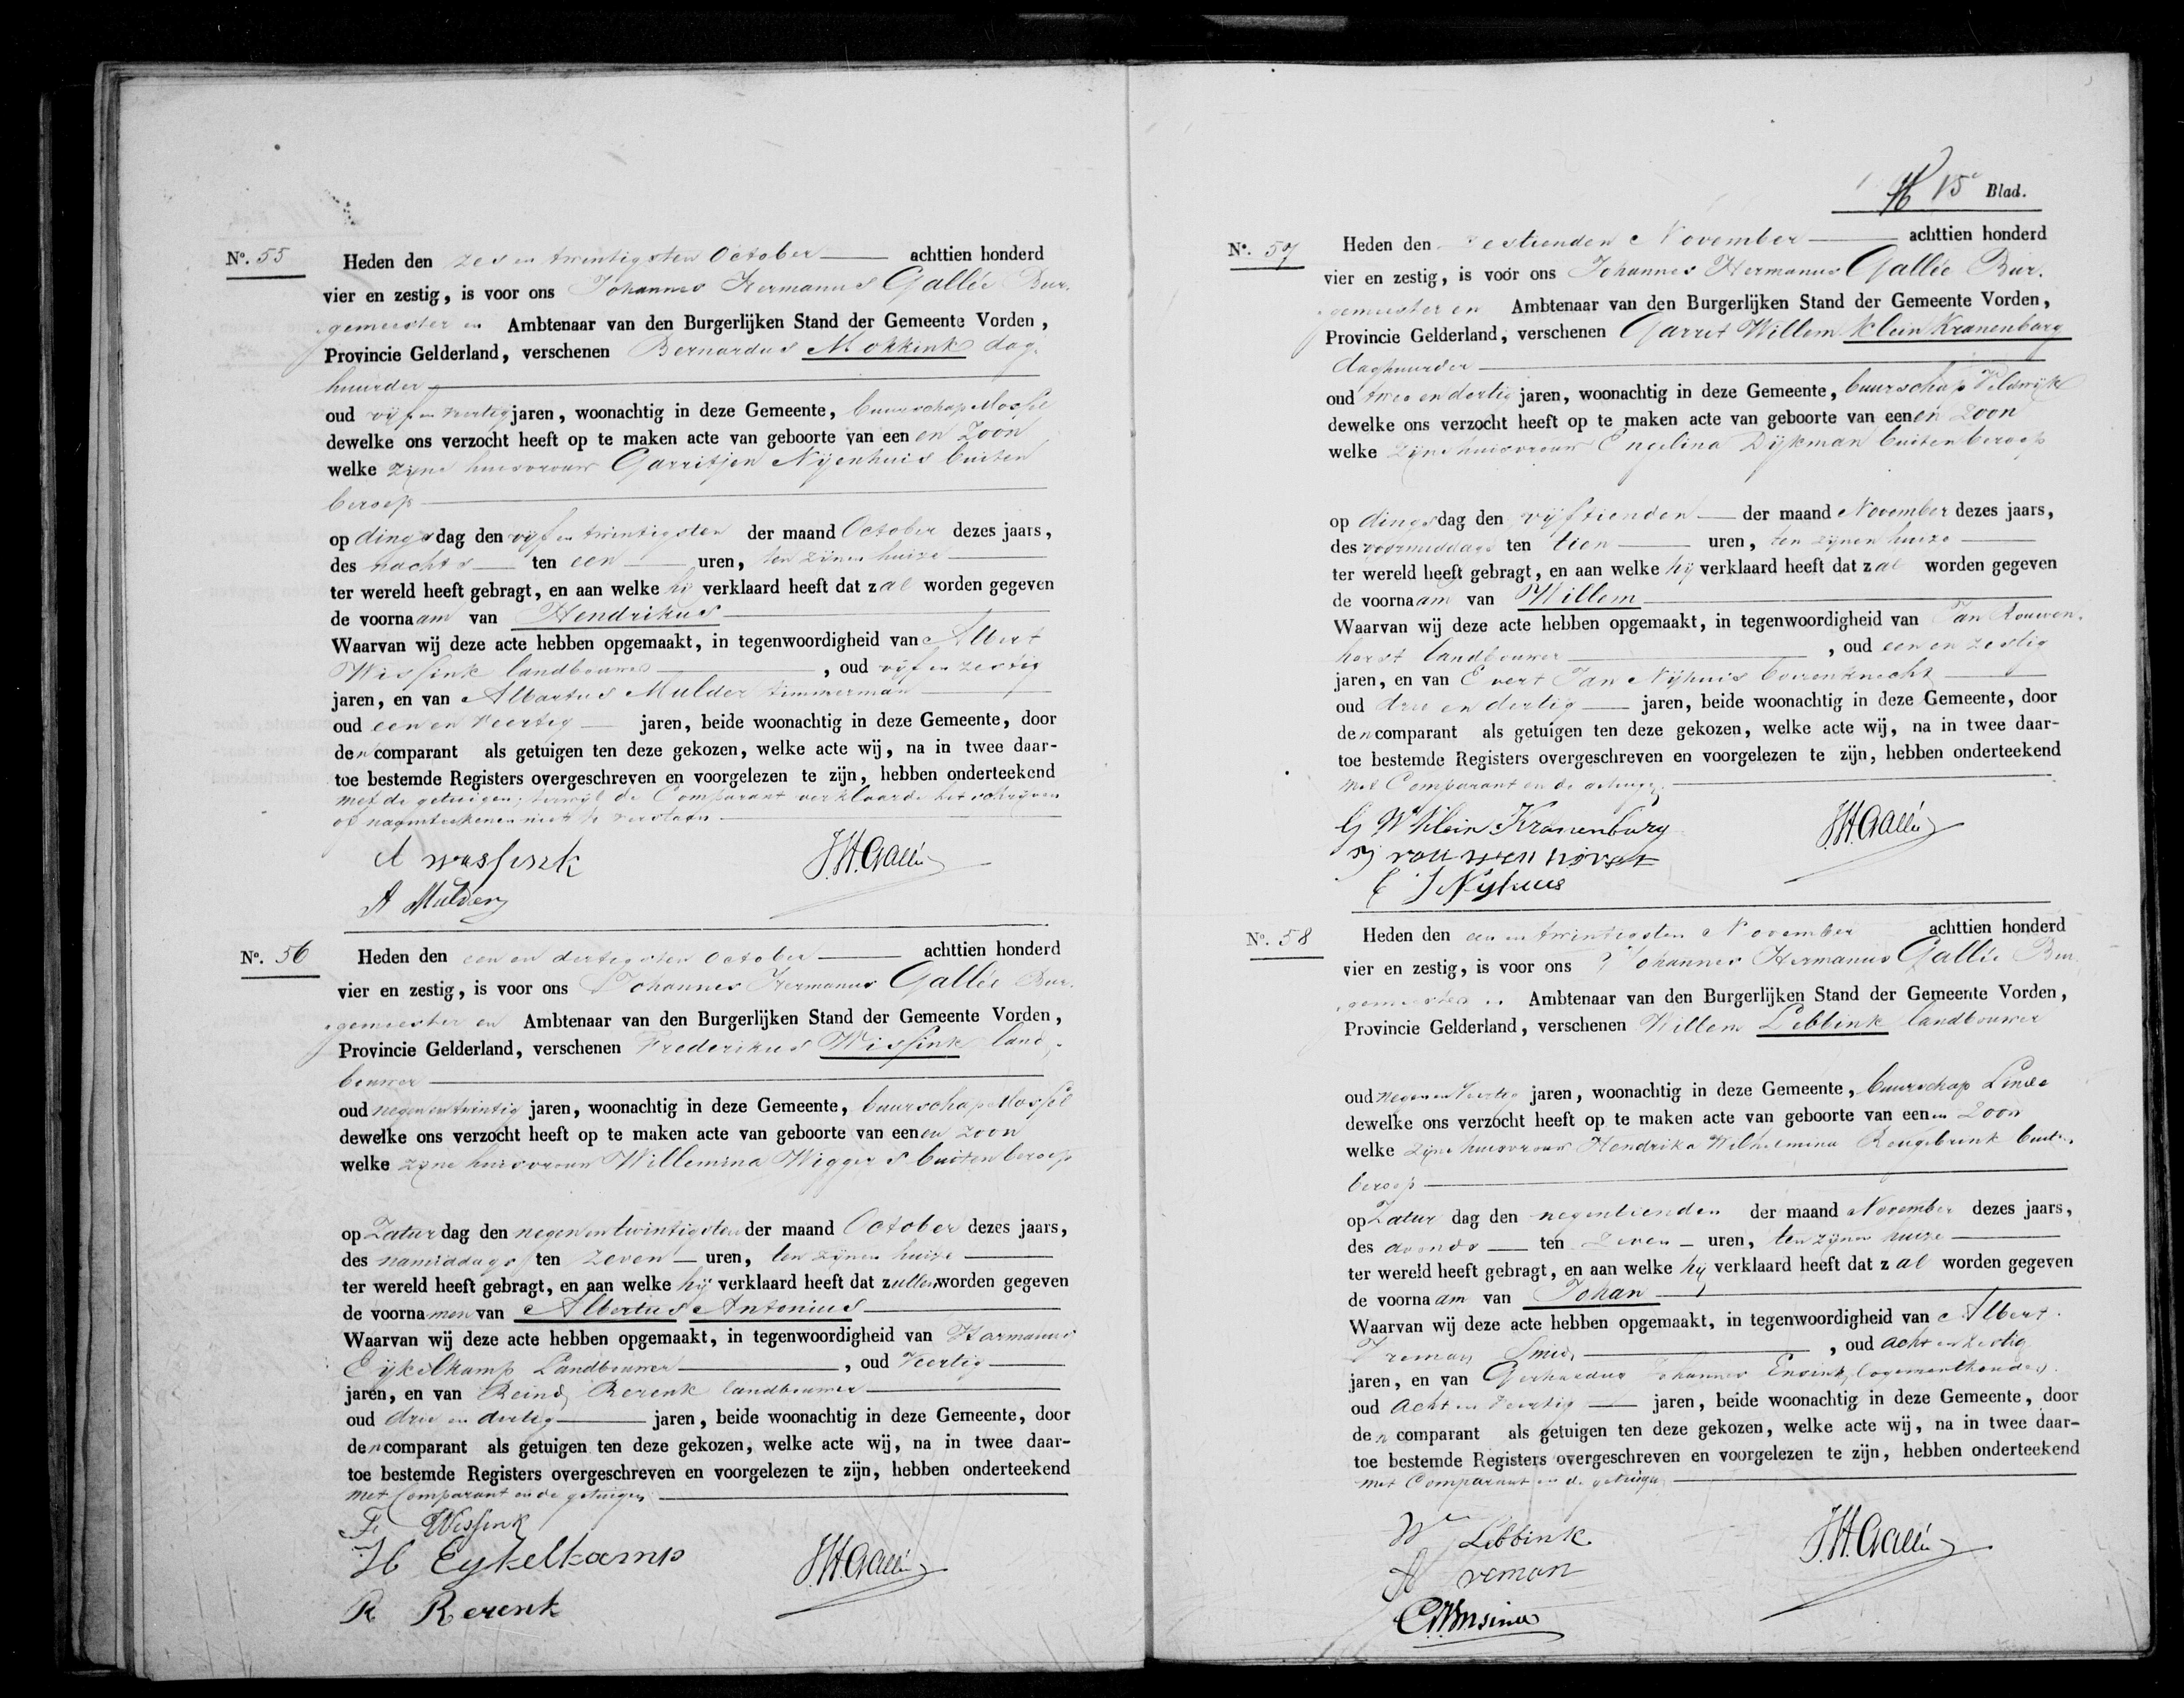 No. 55
Heden den zes en twintigsten October achttien honderd
vier en zestig, is voor ons Johannes Hermanus Gallée Bur-
gemeester en Ambtenaar van den Burgerlijken Stand der Gemeente Vorden,
Provincie Gelderland, verschenen Bernardus Mokkink dag-
huurder
oud vijf en veertig jaren, woonachtig in deze Gemeente, buurschap Mossel
dewelke ons verzocht heeft op te maken acte van geboorte van een en Zoon
welke zijne huisvrouw Garritjen Nijenhuis buiten
beroep
op dingsdag den vijf en twintigsten der maand October dezes jaars,
des nachts ten een uren, ten zijnen huize
ter wereld heeft gebragt, en aan welke hij verklaard heeft dat zal worden gegeven
de voornaam van Hendrikus
Waarvan wij deze acte hebben opgemaakt, in tegenwoordigheid van Albert
Wissink landbouwer, oud vijf en zestig
jaren, en van Albartus Mulder timmerman
oud een en veertig jaren, beide woonachtig in deze Gemeente, door
den comparant als getuigen ten deze gekozen, welke acte wij, na in twee daar-
toe bestemde Registers overgeschreven en voorgelezen te zijn, hebben onderteekend
met de getuigen, terwijl de Comparant verklaarde het schrijven
of naamteekenen niet te verstaan
A wassink
J.H. Gallée
A Mulder
No. 56
Heden den een en dertigsten October achttien honderd
vier en zestig, is voor ons Johannes Hermanus Gallée Bur-
gemeester en Ambtenaar van den Burgerlijken Stand der Gemeente Vorden,
Provincie Gelderland, verschenen Frederikus Wissink land-
bouwer
oud negen en twintig jaren, woonachtig in deze Gemeente, buurschap Mossel
dewelke ons verzocht heeft op te maken acte van geboorte van eenen zoon
welke zijne huisvrouw Willemina Wiggers buiten beroep
op Zaturdag den negen en twintigsten der maand October dezes jaars,
des namiddags ten zeven uren, ten zijnen huize
ter wereld heeft gebragt, en aan welke hij verklaard heeft dat zullen worden gegeven
de voornamen van Albertus Antonius
Waarvan wij deze acte hebben opgemaakt, in tegenwoordigheid van Harmanus
Eijkelkamp Landbouwer, oud Veertig
jaren, en van Reind Rerenk landbouwer
oud drie en dertig jaren, beide woonachtig in deze Gemeente, door
den comparant als getuigen ten deze gekozen, welke acte wij, na in twee daar-
toe bestemde Registers overgeschreven en voorgelezen te zijn, hebben onderteekend
met Comparant en de getuigen
Fr Wissink
H Eykelkamp
J.H. Gallée
R Rerenk
15e Blad.
No. 57
Heden den zestienden November achttien honderd
vier en zestig, is voor ons Johannes Hermanus Gallée Bur-
gemeester en Ambtenaar van den Burgerlijken Stand der Gemeente Vorden,
Provincie Gelderland, verschenen Garret Willem Klein Kranenbarg
daghuurder
oud twee en dertig jaren, woonachtig in deze Gemeente, buurschap Veldwijk
dewelke ons verzocht heeft op te maken acte van geboorte van eenen Zoon
welke zijne huisvrouw Engelina Dijkman buiten beroep
op dingsdag den vijftienden der maand November dezes jaars,
des voormiddags ten tien uren, ten zijnen huize
ter wereld heeft gebragt, en aan welke hij verklaard heeft dat zal worden gegeven
de voornaam van Willem
Waarvan wij deze acte hebben opgemaakt, in tegenwoordigheid van Jan Rouwen-
horst landbouwer, oud een en zestig
jaren, en van Evert Jan Nijhuis boerenknecht
oud drie en dertig jaren, beide woonachtig in deze Gemeente, door
den comparant als getuigen ten deze gekozen, welke acte wij, na in twee daar-
toe bestemde Registers overgeschreven en voorgelezen te zijn, hebben onderteekend
met Comparant en de getuigen
G W Klein Kranenburg
J.H. Gallée
rouwenhorst
E J Nyhuis
No. 58
Heden den een en twintigsten November achttien honderd
vier en zestig, is voor ons Johannes Hermanus Gallée Bur-
gemeester en Ambtenaar van den Burgerlijken Stand der Gemeente Vorden,
Provincie Gelderland, verschenen Willem Lebbink landbouwer
oud negen en veertig jaren, woonachtig in deze Gemeente, buurschap Linde
dewelke ons verzocht heeft op te maken acte van geboorte van eenen Zoon
welke zijne huisvrouw Hendrika Wilhelmina Reugebrink buiten
beroep
op Zaturdag den negentienden der maand November dezes jaars,
des avonds ten Zeven uren, ten zijnen huize
ter wereld heeft gebragt, en aan welke hij verklaard heeft dat zal worden gegeven
de voornaam van Johan
Waarvan wij deze acte hebben opgemaakt, in tegenwoordigheid van Albert
Vreman Smid, oud acht en
jaren, en van Gerhardus Johannes Ensink, logementhouder
oud acht en veertig jaren, beide woonachtig in deze Gemeente, door
den comparant als getuigen ten deze gekozen, welke acte wij, na in twee daar-
toe bestemde Registers overgeschreven en voorgelezen te zijn, hebben onderteekend
met Comparant en de getuigen
Wm Lebbink
J.H. Gallée
A vreman